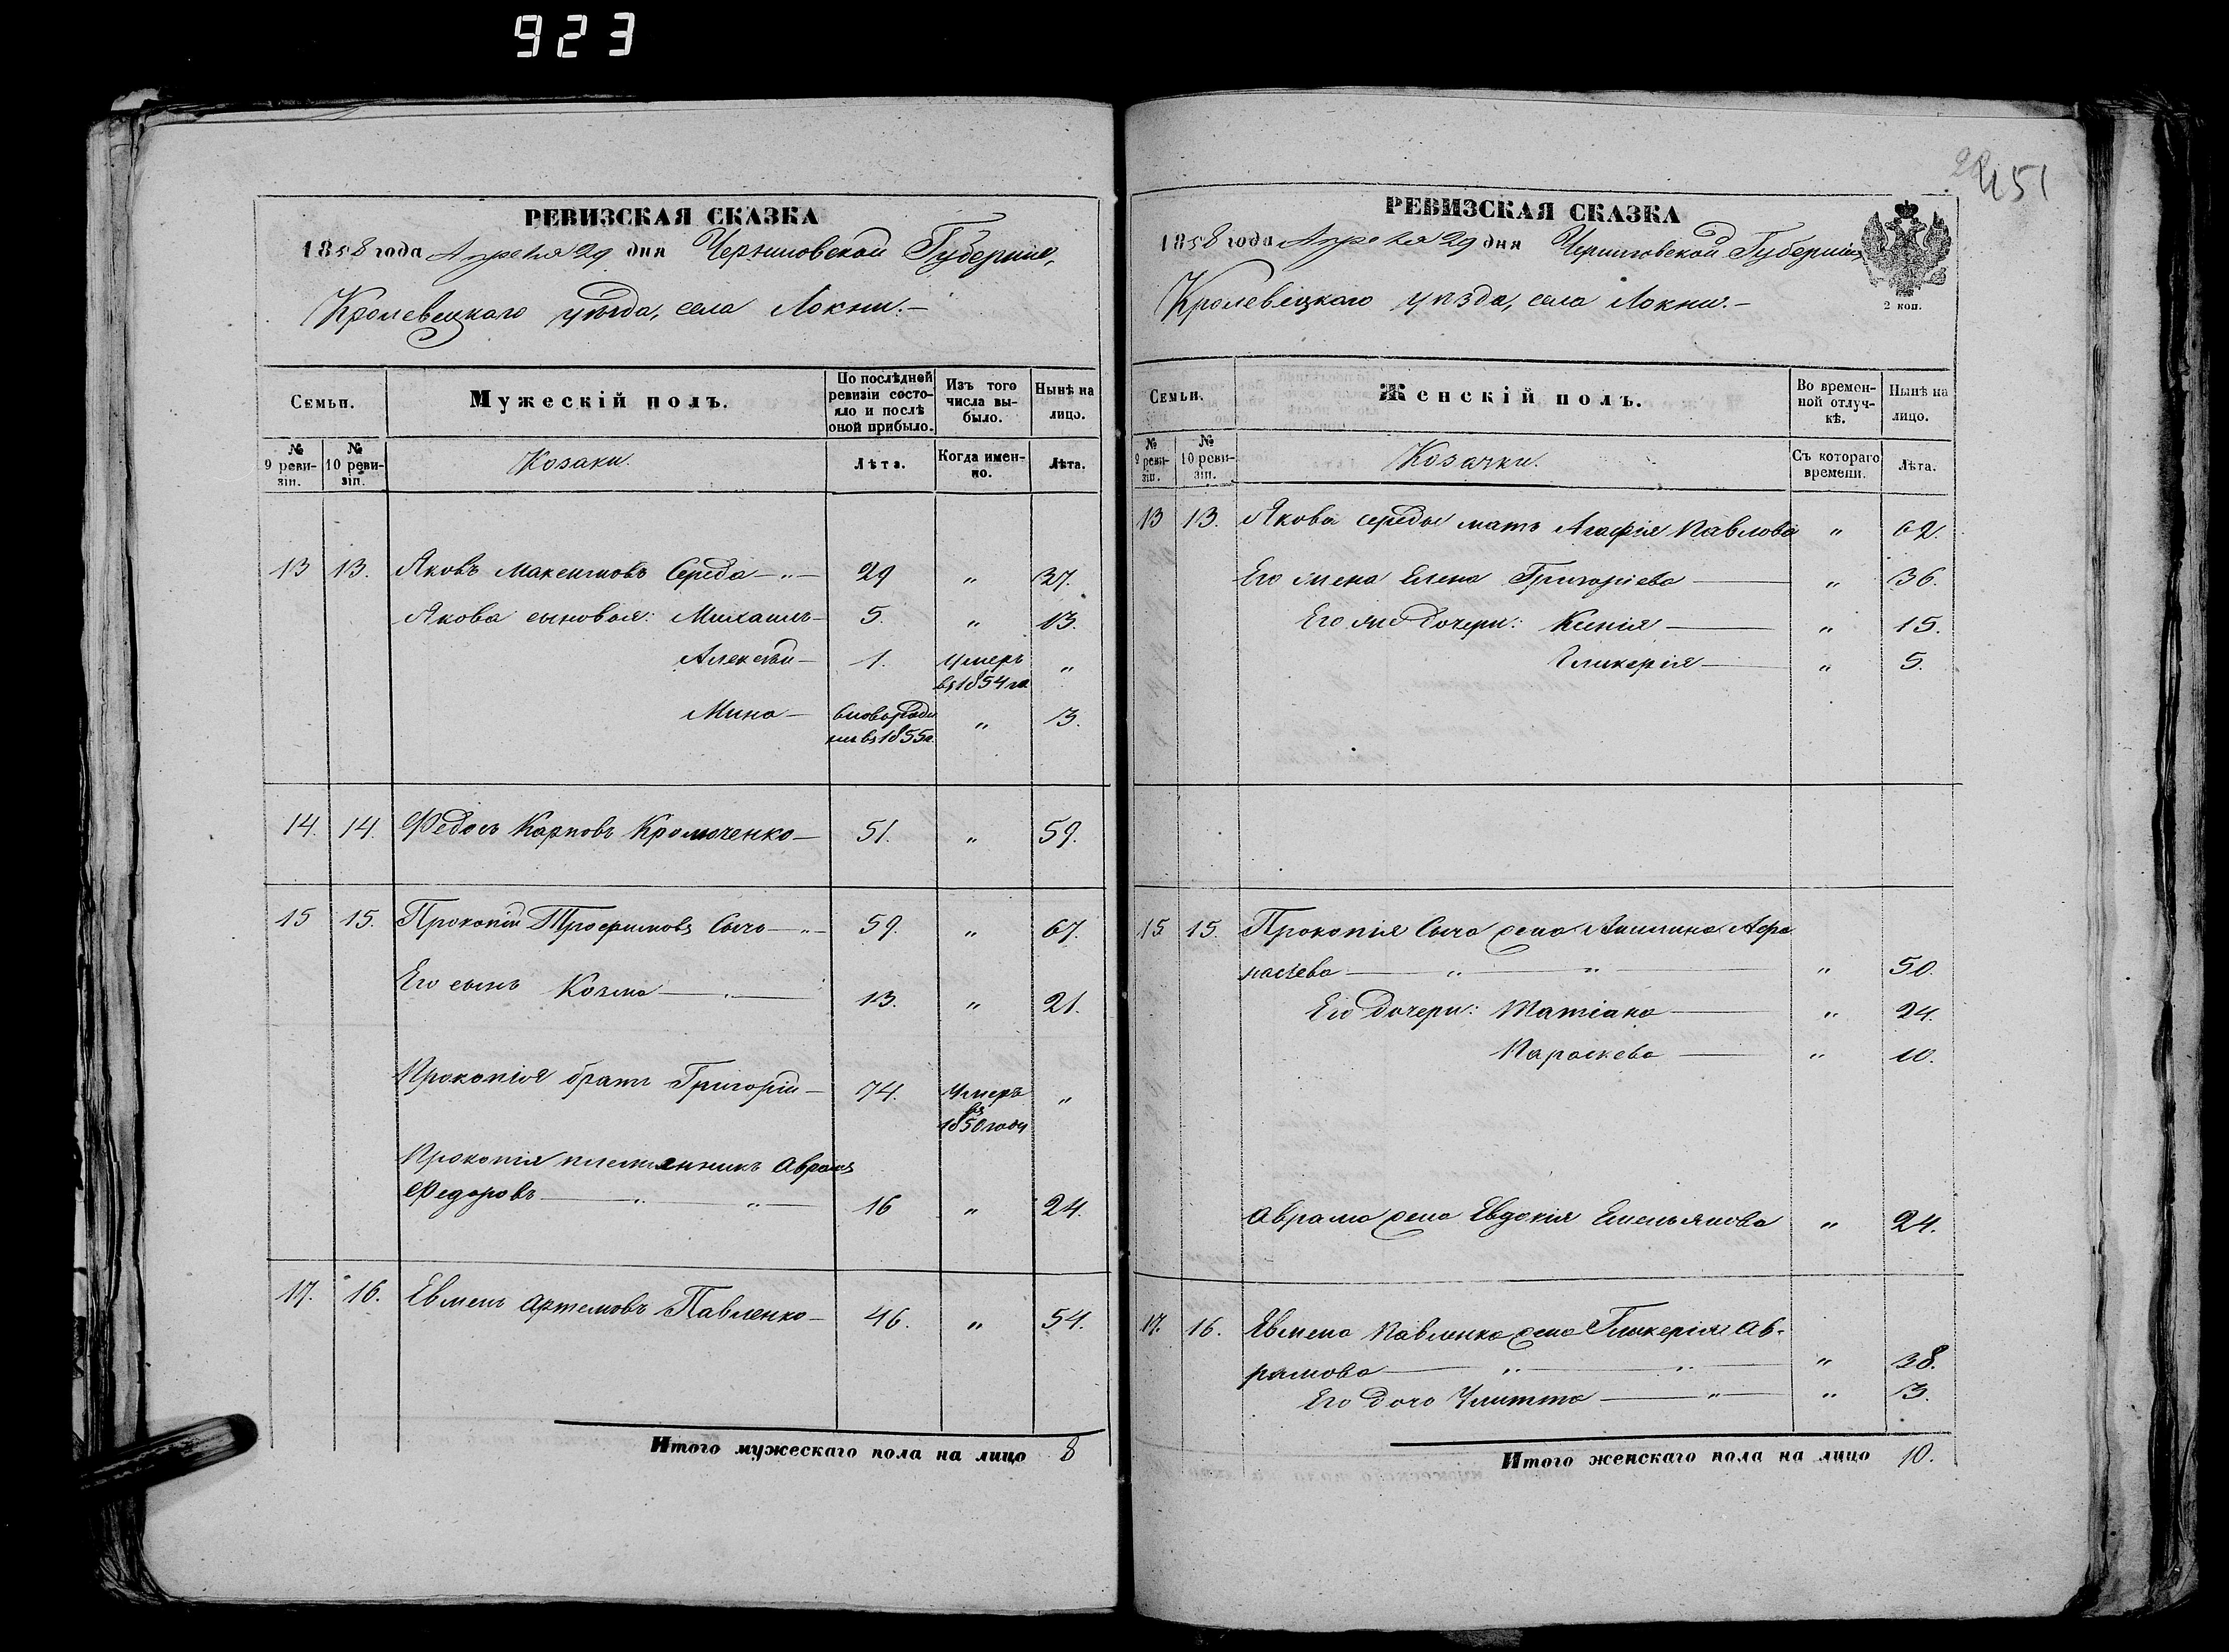 923
РЕВИЗСКАЯ СКАЗКА
1858 года Апреля 29 дня Черниговской Губернiи,
Кролевецкаго уѣзда, села Локни.–
Семьи.
Мужескiй полъ.
По послѣдней ревизiи состояло и послѣ оной прибыло.
Изъ того числа выбыло.
Нынѣ на лицо.
№ 9 ревизiи.
№ 10 ревизiи.
Козаки.
Лѣта.
Когда именно.
Лѣта.
13 13. Яковъ Максимовъ Середа –"– 29 " 37.
Якова сыновья: Михаилъ – 5. " 13.
Алексѣй – 1. умеръ въ 1854 го "
Мина – вновь роди лся въ 1855 г. " 3.
14. 14. Федосъ Карповъ – 51. " 59.
15 15. Прокопiй Трофимовъ Сычъ –"– 59. " 67.
Его сынъ Козма –"– 13. " 21.
Прокопiя братъ Григорiй – 74. Умеръ въ 1850 году "
Прокопiя племянникъ Аврамъ
Федоровъ –"–"– 16 " 24.
17. 16. Евменъ Артемовъ Павленко – 46. " 54.
Итого мужескаго пола на лицо 8
451
РЕВИЗСКАЯ СКАЗКА
1858 года Апреля 29 дня Черниговской Губернiи,
Кролевецкаго уѣзда, села Локни.–
2 коп.
Семьи.
Женскiй полъ.
Во временной отлучкѣ.
Нынѣ на лицо.
№ 9 ревизiи.
№ 10 ревизiи.
Козачки.
Съ котораго времени.
Лѣта.
13 13. Якова Середы мать Агафiя Павлова " 62.
Его жена Елена Григорiева — " 36.
Его же дочери: Ксенiя — " 15.
Гликерiя — " 5.
15 15. Прокопiя Сыча жена Афа
насiева —"—"— " 50.
Его дочери: Татiана — " 24.
Параскева — " 10.
Аврама жена Евдокiя Емельянова " 24.
17. 16. Евмена Павленка жена Гликерiя Ав-
рамова —"—"— " 38.
Его дочь Улитта —"— " 3.
Итого женскаго пола на лицо 10.